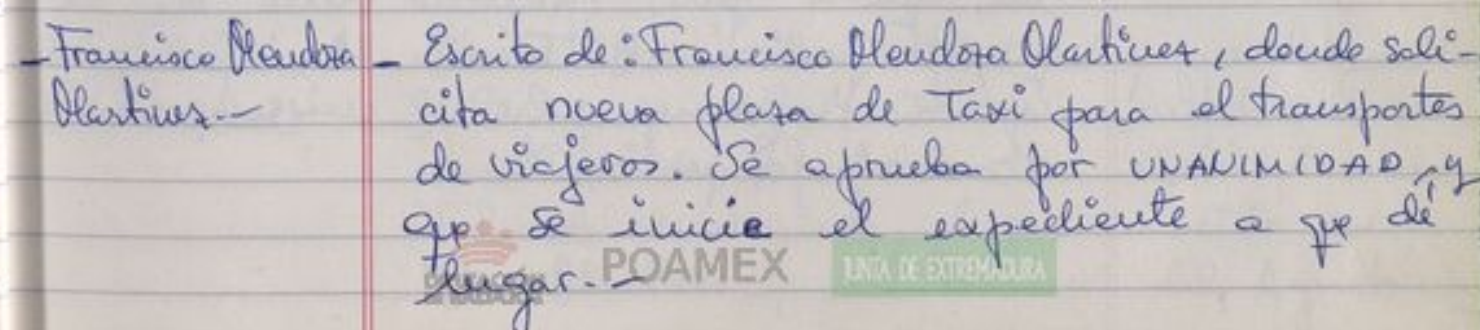 - Francisco Mendoza
Martinez.-
- Escrito de: Francisco Mendoza Martinez, donde soli-
cita nueva plaza de Taxi para el transportes
de viajeros. Se aprueba por UNANIMIDAD, y
que se inicie el expediente a que dé
lugar.-
POAMEX
JUNTA DE EXTREMADURA